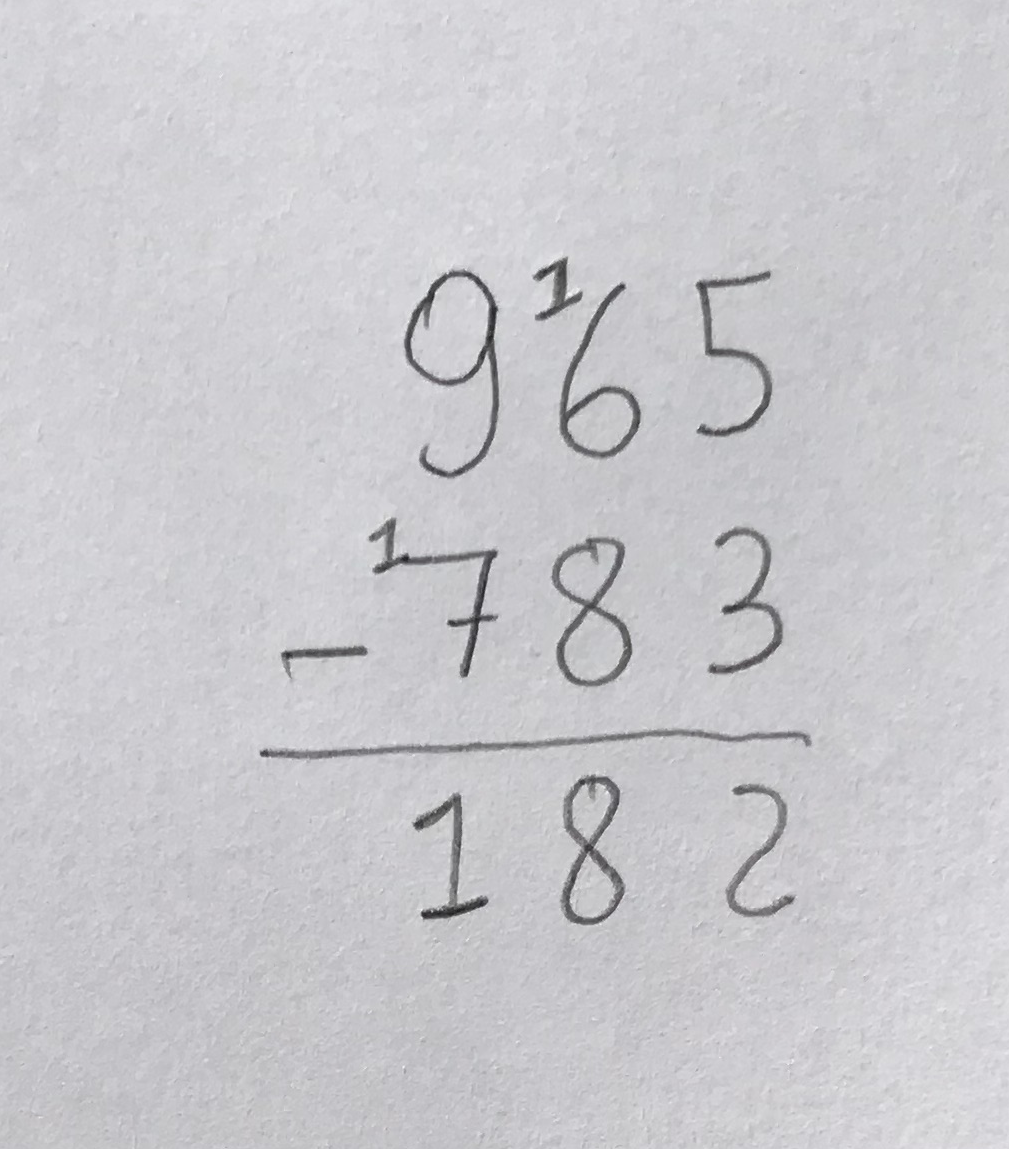 9 ¹6 5
- ¹7 8 3
1 8 2